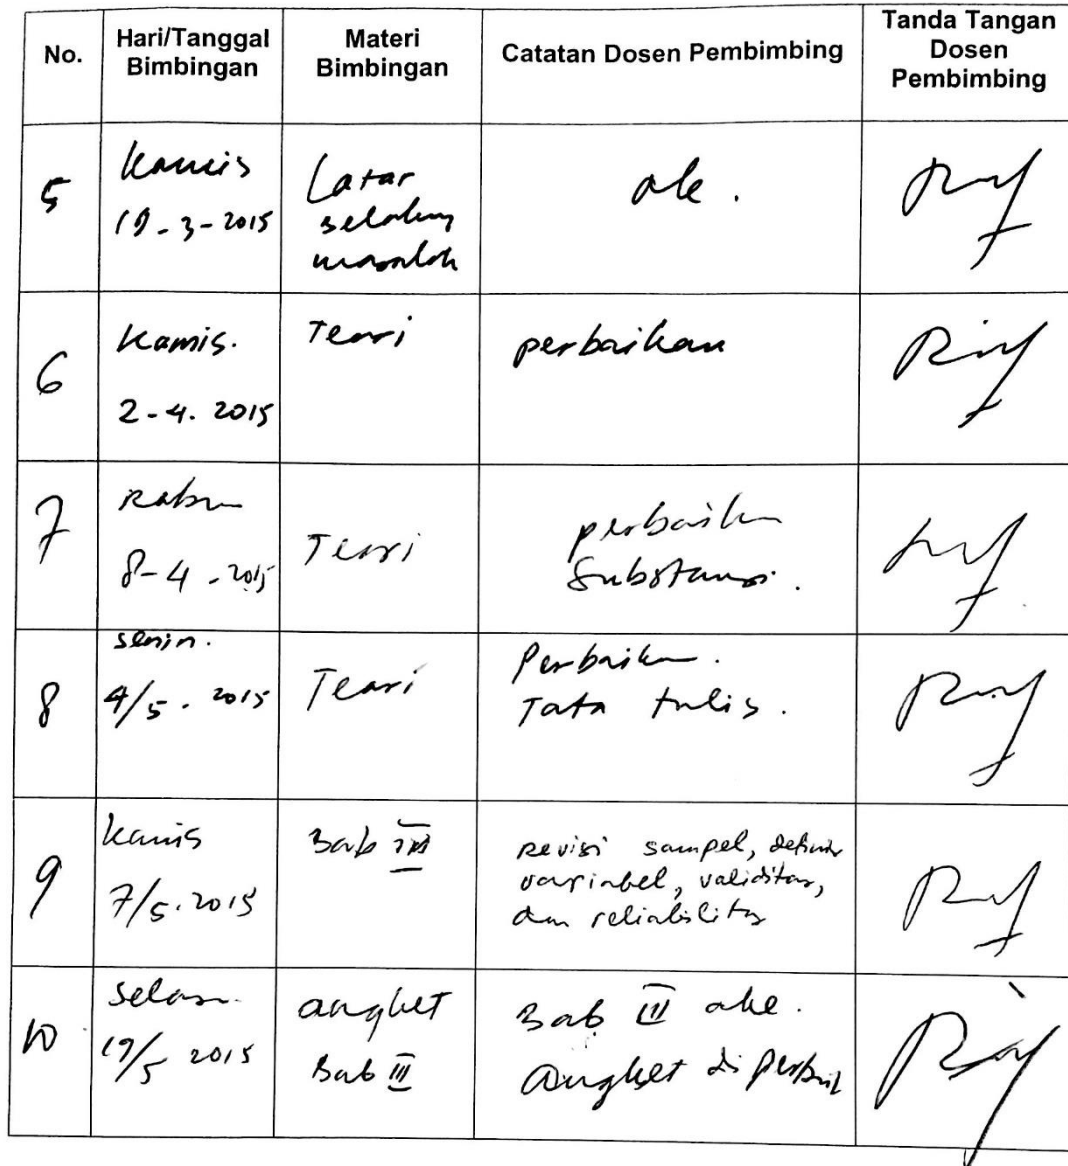 No.
Hari/Tanggal
Bimbingan
Materi
Bimbingan
Catatan Dosen Pembimbing
Tanda Tangan
Dosen
Pembimbing
5
Kamis
19-3-2015
Latar
belakang
masalah
oke.
6
Kamis.
2-4. 2015
Teori
perbaikan
7
Rabu
8-4-2015
Teori
perbaikan
Substansi.
8
senin.
4/5. 2015
Teori
Perbaikan.
Tata tulis.
9
Kamis
7/5. 2015
Bab III
Revisi sampel, definisi
variabel, validitas,
dan reliabilitas
10
Selasa.
19/5 2015
angket
Bab III
Bab III oke.
Angket diperbaiki